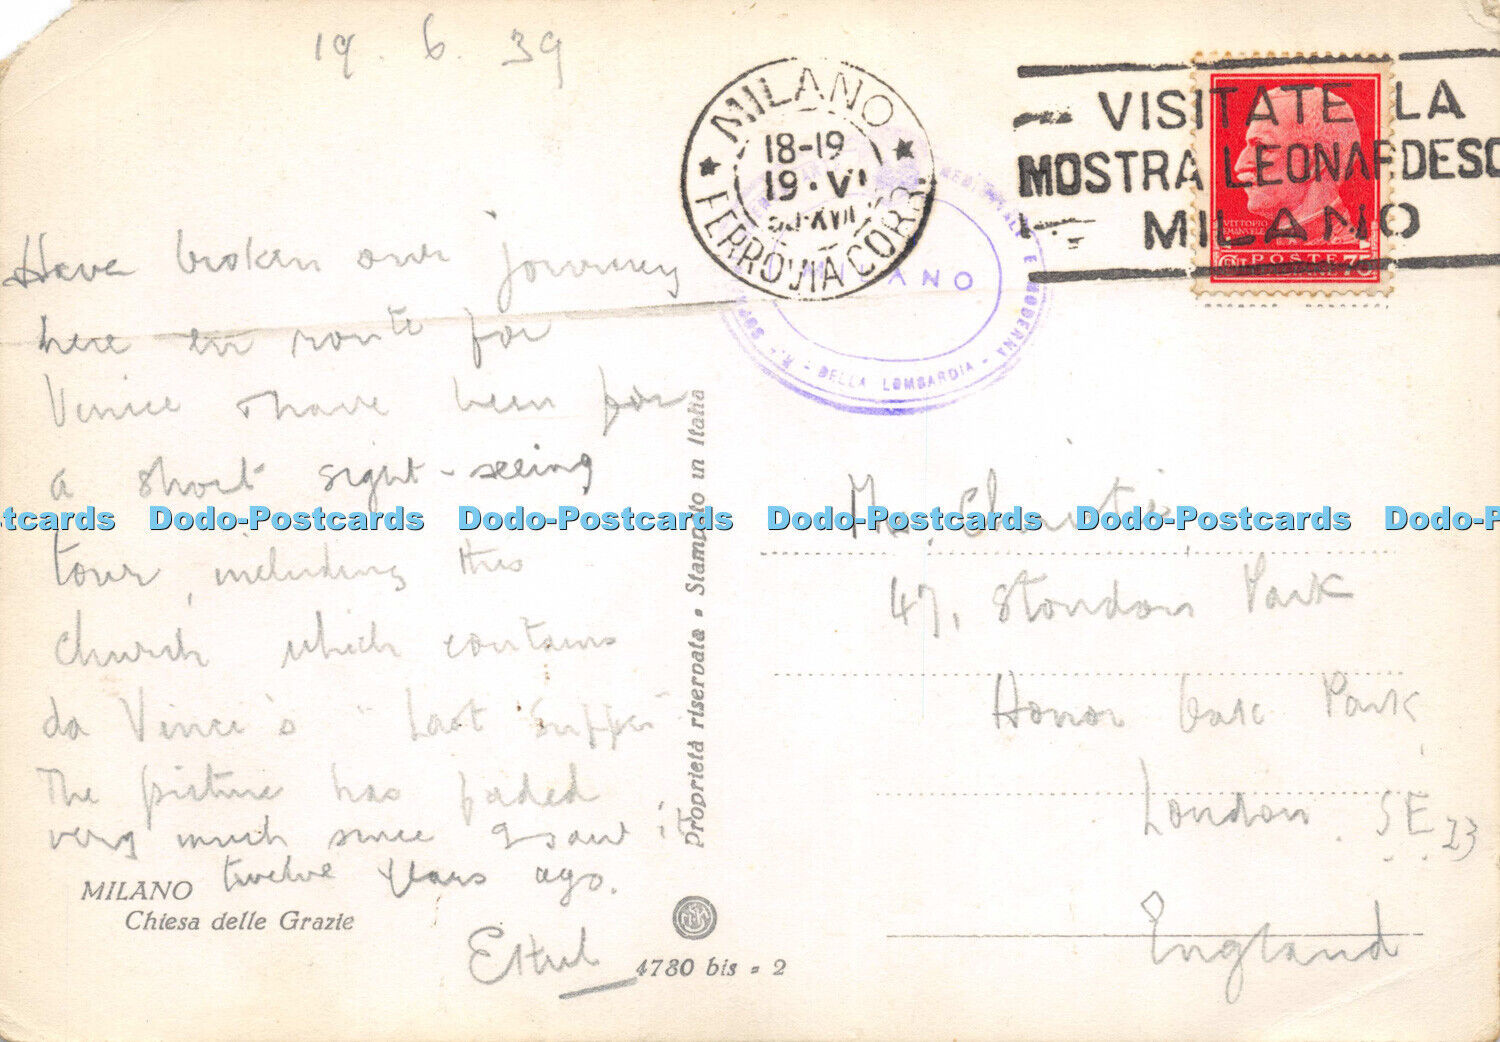 19. 6. 39
MILANO
18-19
19·VI
XVII
FERROVIA CORR.
VISITATE LA
MOSTRA LEONARDESC
MILANO
VITTORIO
EMANUELE
POSTE
CENT 75
MILANO
E MODERNA
DELLA LOMBARDIA
Have broken our journey
here en route for
Venice & have been for
a short sight-seeing
tour, including this
church which contains
da Vinci's "Last Supper"
The picture has faded
very much since I saw it
twelve years ago.
Ethel
MILANO
Chiesa delle Grazie
Proprietà riservata - Stampato in Italia
4780 bis - 2
Christie
47, Stondon Park
Honor Oak Park
London. SE 23
England
tcards Dodo-Postcards Dodo-Postcards Dodo-Postcards Dodo-Postcards Dodo-P